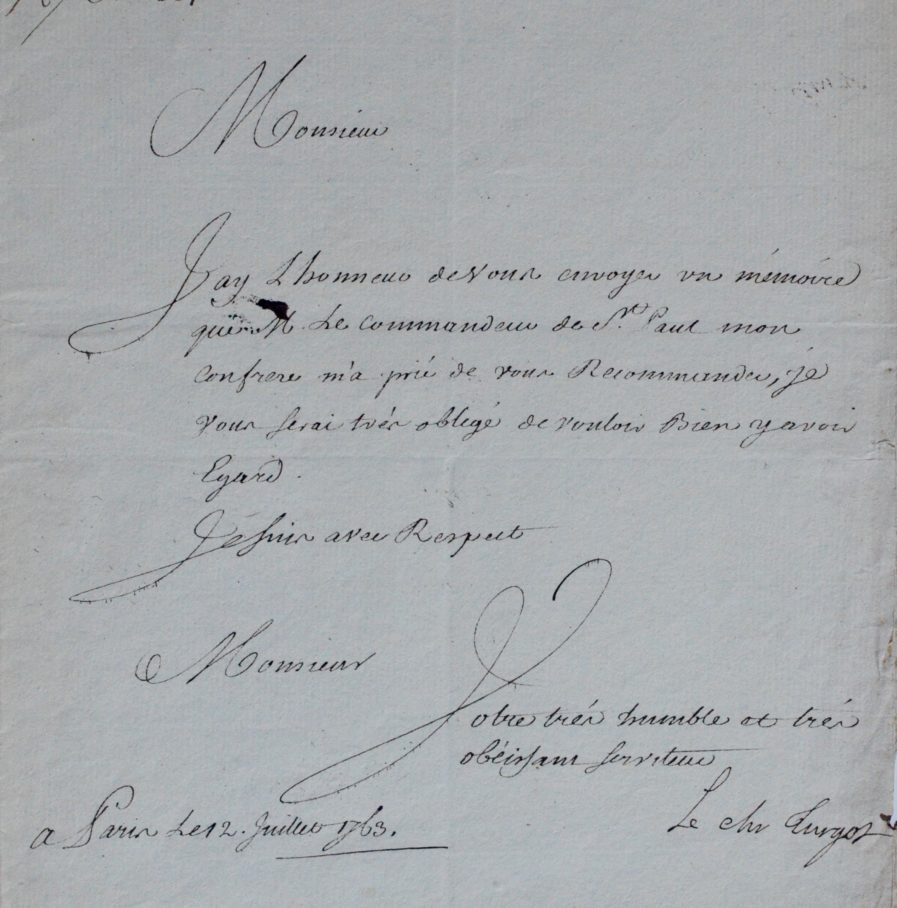 Monsieur
J'ay L'honneur de vous envoyer un mémoire
que M. Le commandeur de St. Paul mon
confrere m'a prié de vous Recommander, je
vous serai trés obligé de vouloir Bien y avoir
Egard.
Je suis avec Respect
Monsieur
Votre trés humble et trés
obéissant serviteur
a Paris Le 12. Juillet 1763.
Le chr Turgot